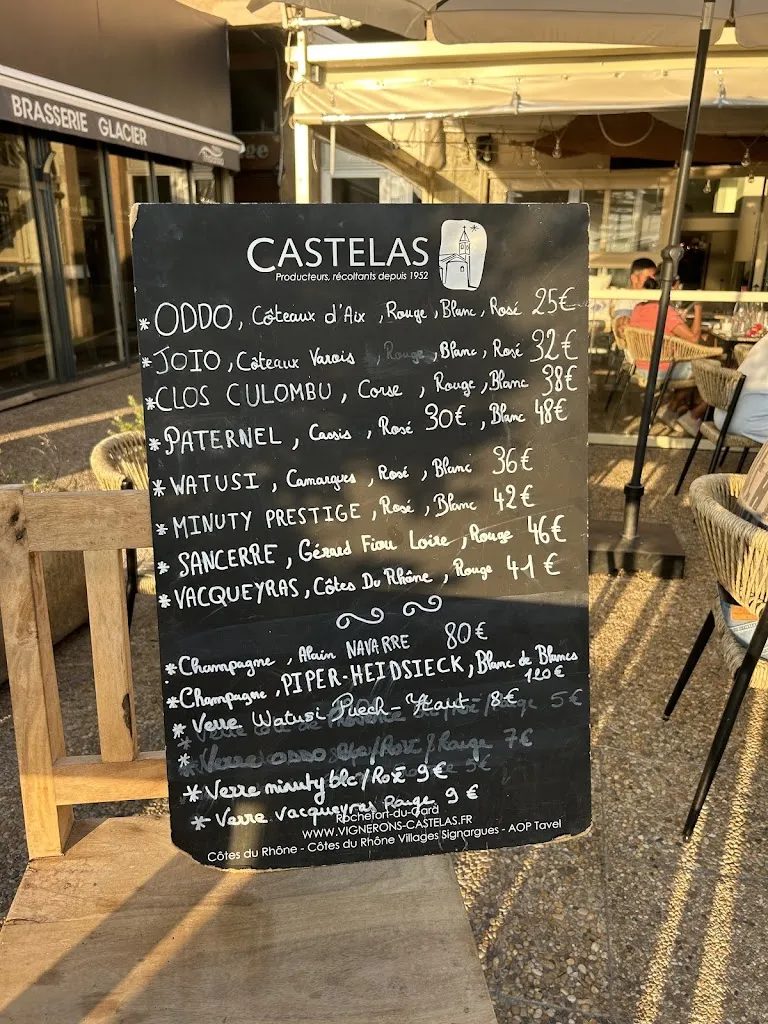 BRASSERIE GLACIER
CASTELAS
Producteurs, récoltants depuis 1952
* ODDO, Côteaux d'Aix, Rouge, Blanc, Rosé 25€
* JOIO, Côteaux Varois, Rouge, Blanc, Rosé 32€
* CLOS CULOMBU, Corse, Rouge, Blanc 38€
* PATERNEL, Cassis, Rosé 30€, Blanc 48€
* WATUSI, Camargues, Rosé, Blanc 36€
* MINUTY PRESTIGE, Rosé, Blanc 42€
* SANCERRE, Gérard Fiou Loire, Rouge 46€
* VACQUEYRAS, Côtes Du Rhône, Rouge 41€
* Champagne, Alain NAVARRE 80€
* Champagne, PIPER-HEIDSIECK, Blanc de Blancs
120€
* Verre Watusi Puech-Haut 8€
5€
* Verre ODDO blc/Rosé/Rouge 7€
* Verre minuty blc/Rosé 9€
* Verre vacqueyras Rouge 9€
Rochefort-du-Gard
WWW.VIGNERONS-CASTELAS.FR
Côtes du Rhône - Côtes du Rhône Villages Signargues - AOP Tavel